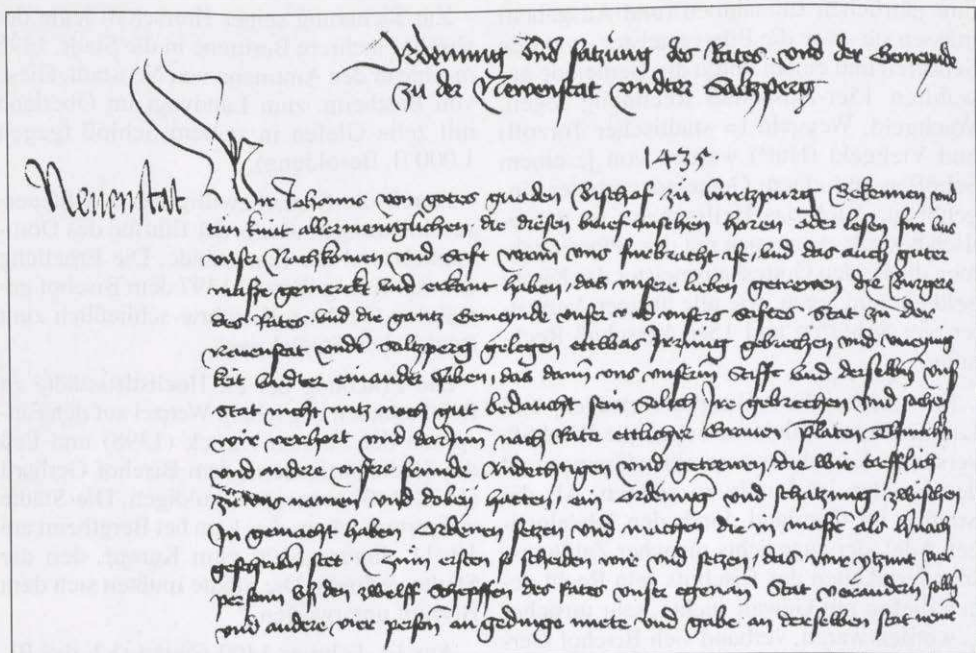 Ordnung und satzung des Rates und der Gemeinde
zu der Newenstat under Saltzperg
1435
Newenstat
Wir Johanns von gotes gnaden Bischof zu Wirtzpurg Bekennen und
tun kunt allermenniglichen die diesen brief ansehen horen oder lesen fur uns
unser Nachkomen und Stift Wann uns furbracht ist und das auch guter
masse gemerckt und erkant haben, das unsere lieben getrewen die Burgere
des Rates und die gantz Gemeinde unser und unsers Stiftes Stat zu der
Newenstat under Saltzperg gelegen ettwas Irrung gebrechen und
mit einander haben, das dann uns unserm Stifft und derselben unser
Stat nicht nutz noch gut bedaucht sein Solich Ire gebrechen und sachen
wir verhort und darynn nach Rate ettlicher Graven Prelaten
und andere unsere freunde Andechtigen und getrewen, die Wir trefflich
genomen und dabey hatten, ein ordenung und zwischen
In gemacht haben Ordenen setzen und machen die In massen als hernach
geschriben stet Zum ersten so scheiden wir und setzen, das wir ytzunt vier
person bey den zwelff Schepffen des Rates unser egenannten Stat verandern sollen
und andere vier person an gedinge miete und gabe an derselben stat